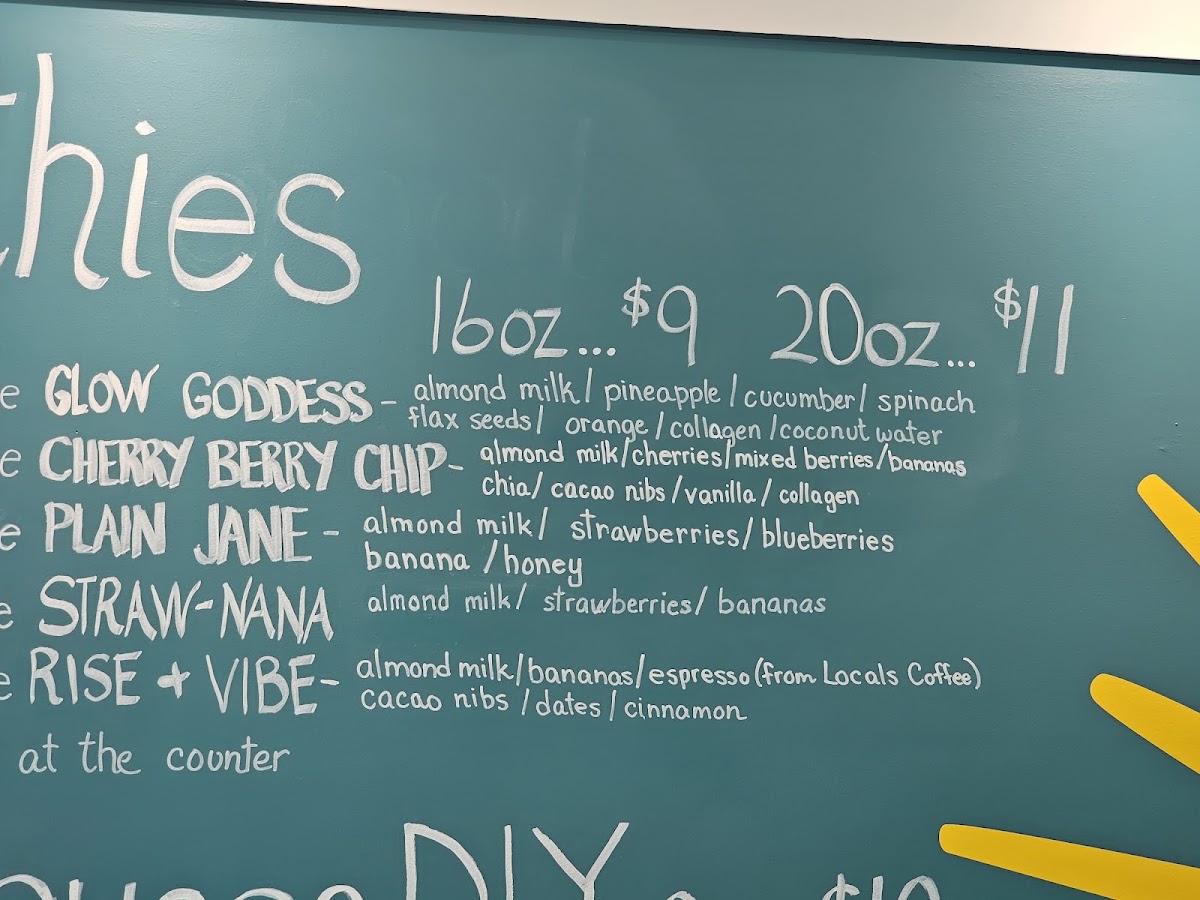 thies
16oz... $9 20oz... $11
e GLOW GODDESS - almond milk/ pineapple / cucumber/ spinach
flax seeds/ orange / collagen / coconut water
e CHERRY BERRY CHIP - almond milk/cherries/mixed berries/bananas
chia/ cacao nibs / vanilla / collagen
e PLAIN JANE - almond milk/ strawberries/ blueberries
banana / honey
e STRAW-NANA almond milk/ strawberries/ bananas
e RISE + VIBE - almond milk/bananas/espresso (from Locals Coffee)
cacao nibs / dates / cinnamon
at the counter
DIY